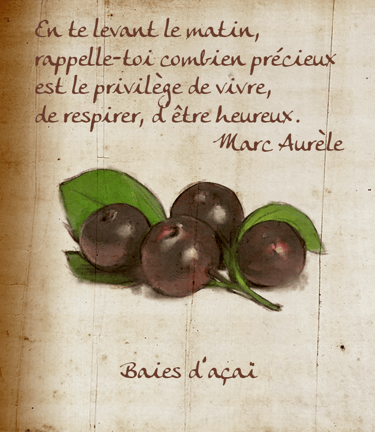 En te levant le matin,
rappelle-toi combien précieux
est le privilège de vivre,
de respirer, d être heureux.
Marc Aurèle
Baies d'açaï